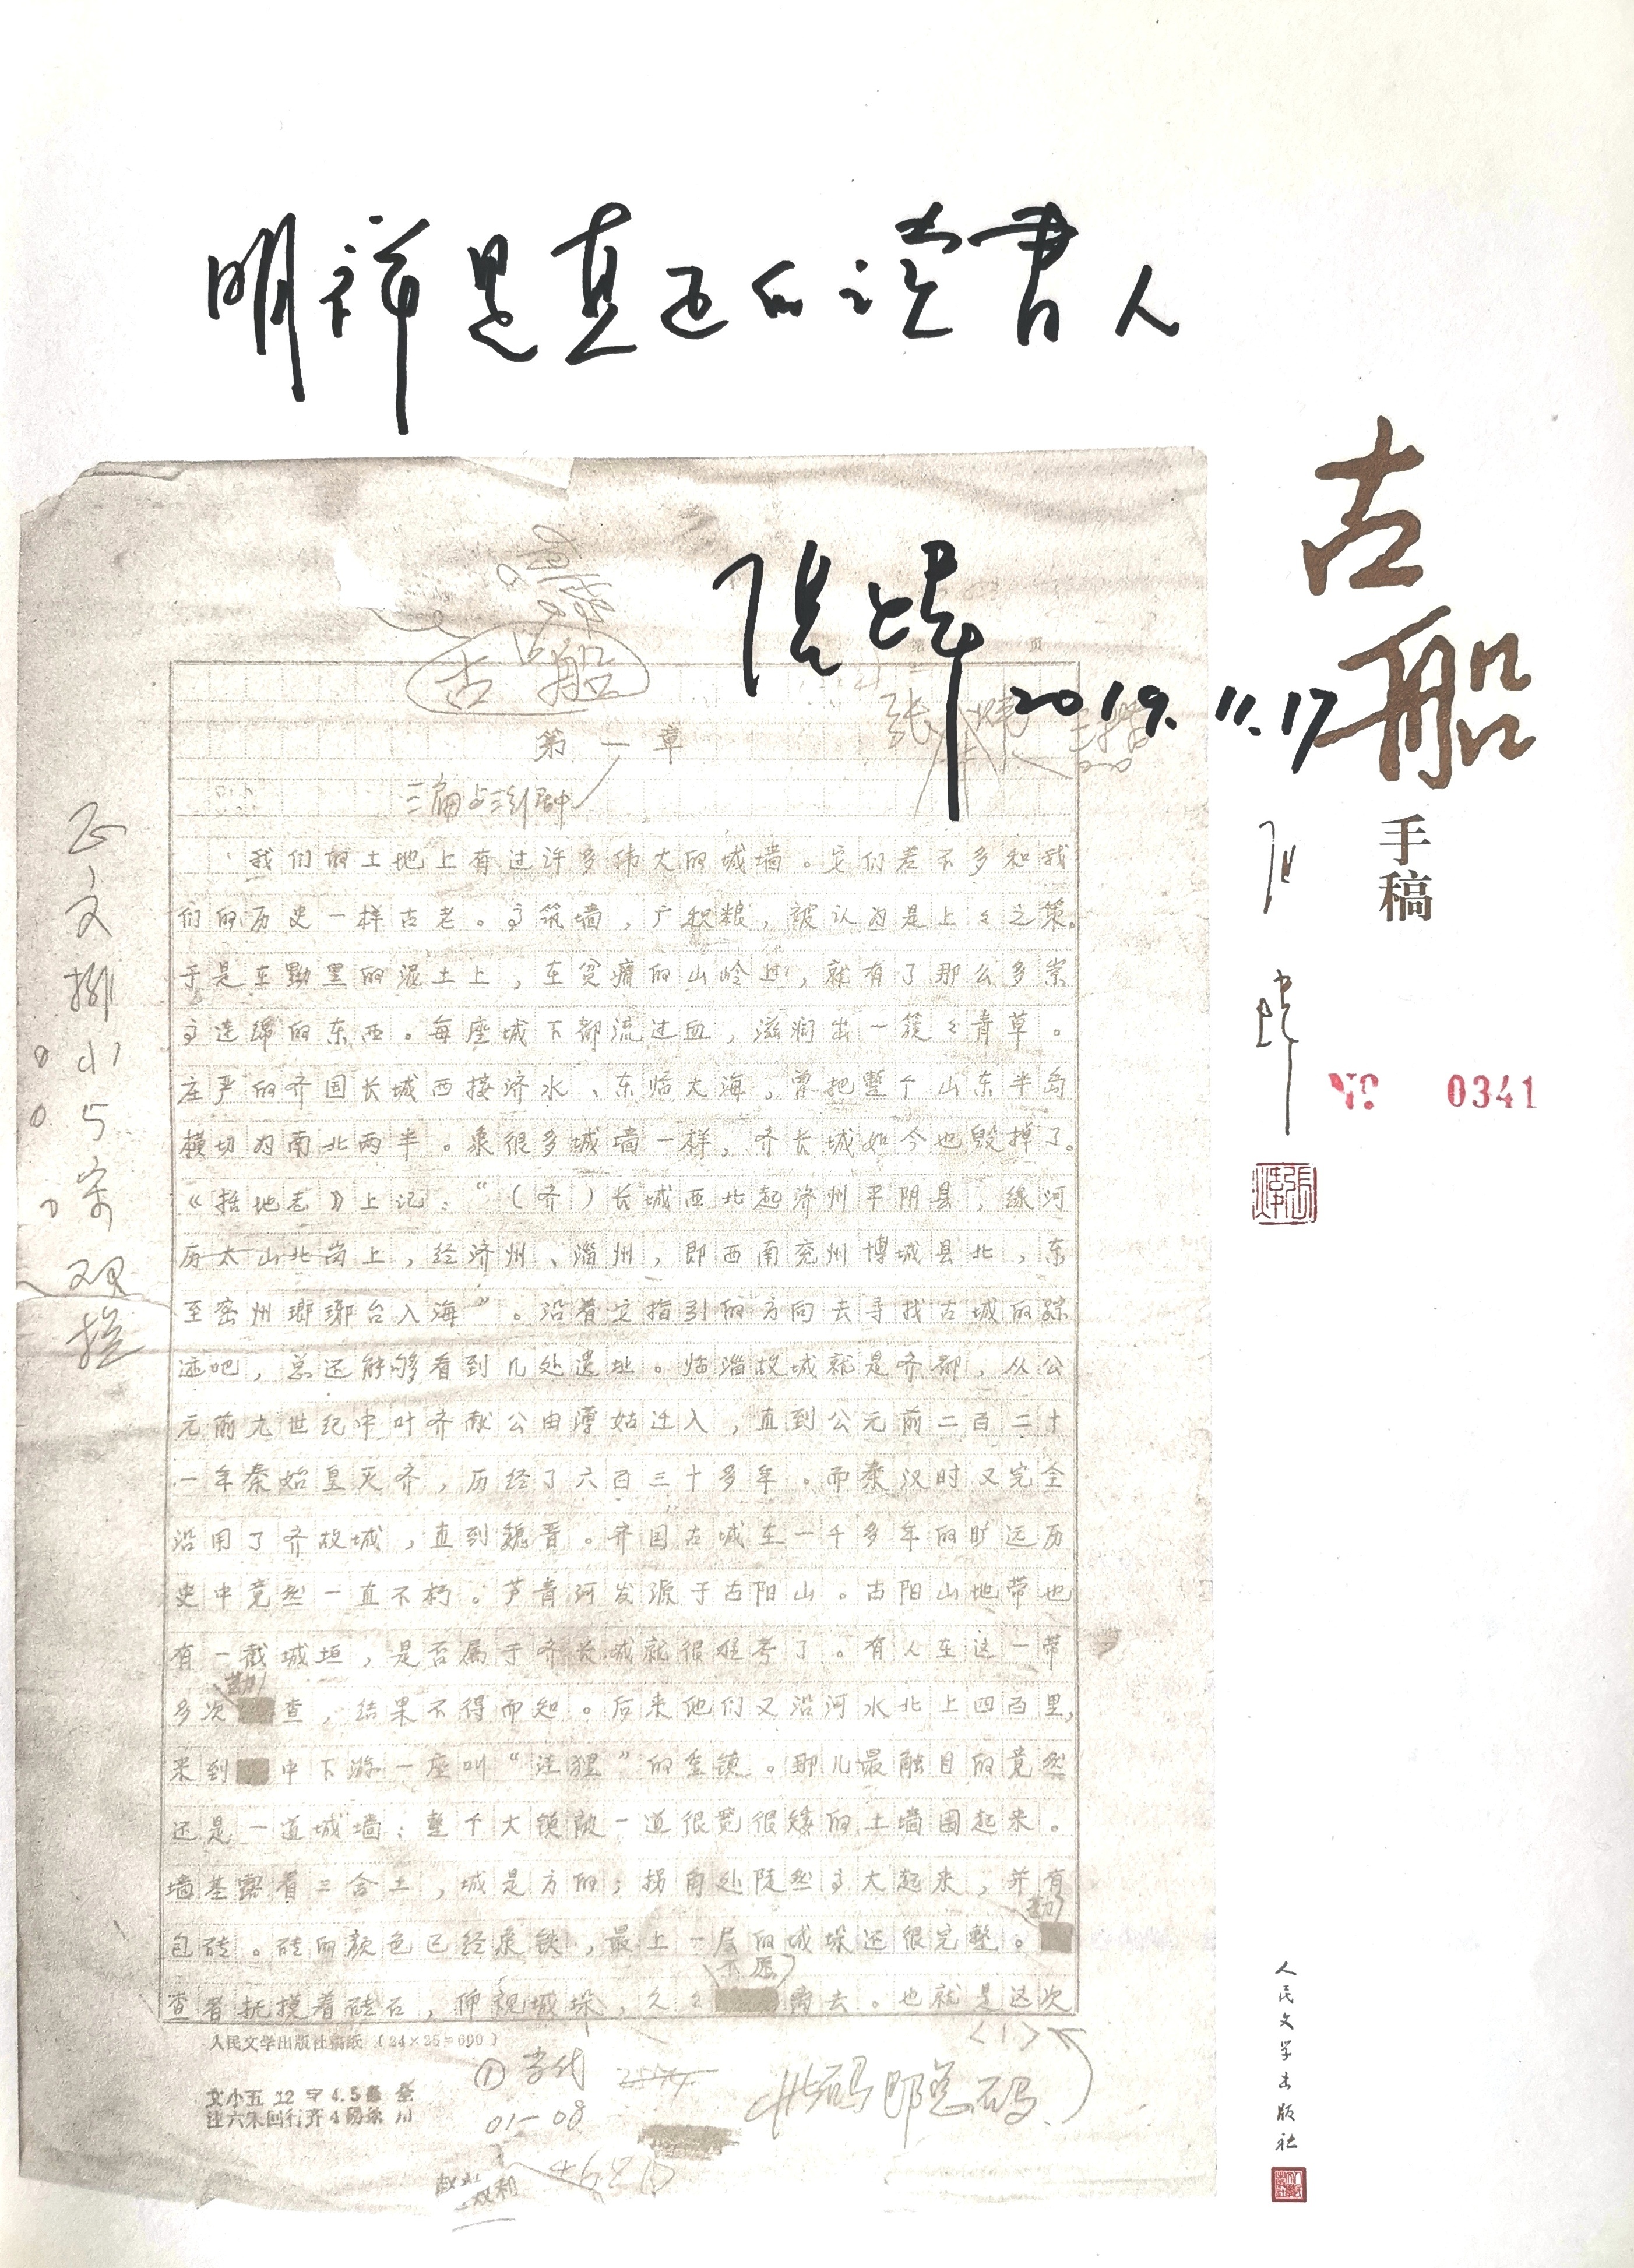 明祥是真正的读书人
张炜
2019.11.17
古船
手稿
张炜
№ 0341
张炜
人民文学出版社
古船
张炜
第一章
正文排小5宋双挂
我们的土地上有过许多伟大的城墙。它们差不多和我
们的历史一样古老。高筑墙，广积粮，被认为是上々之策。
于是在黝黑的泥土上，在贫瘠的山岭上，就有了那么多崇
高连绵的东西。每座城下都流过血，滋润出一簇々青草。
庄严的齐国长城西接济水、东临大海，曾把整个山东半岛
横切为南北两半。象很多城墙一样，齐长城如今也毁掉了。
《括地志》上记：“（齐）长城西北起济州平阴县，缘河
历太山北岗上，经济州、淄州，即西南兖州博城县北，东
至密州瑯琊台入海”。沿着它指引的方向去寻找古城的踪
迹吧，总还能够看到几处遗址。临淄故城就是齐都，从公
元前九世纪中叶齐献公由薄姑迁入，直到公元前二百二十
一年秦始皇灭齐，历经了六百三十多年。而秦汉时又完全
沿用了齐故城，直到魏晋。齐国古城在一千多年的旷远历
史中竟然一直不朽。芦青河发源于古阳山。古阳山地带也
有一截城垣，是否属于齐长城就很难考了。有人在这一带
多次勘查，结果不得而知。后来他们又沿河水北上四百里，
来到中下游一座叫“洼狸”的重镇。那儿最触目的竟然
还是一道城墙：整个大镇被一道很宽很矮的土墙围起来。
墙基露着三合土，城是方的；拐角处陡然高大起来，并有
包砖。砖的颜色已经象铁，最上一层的城垛还很完整。勘
查者抚摸着砖石，仰视城垛，久々不愿离去。也就是这次
人民文学出版社稿纸（24×25=600）
〈1〉
①当代
01—08
此码即总码
文小五 22 字 4.5